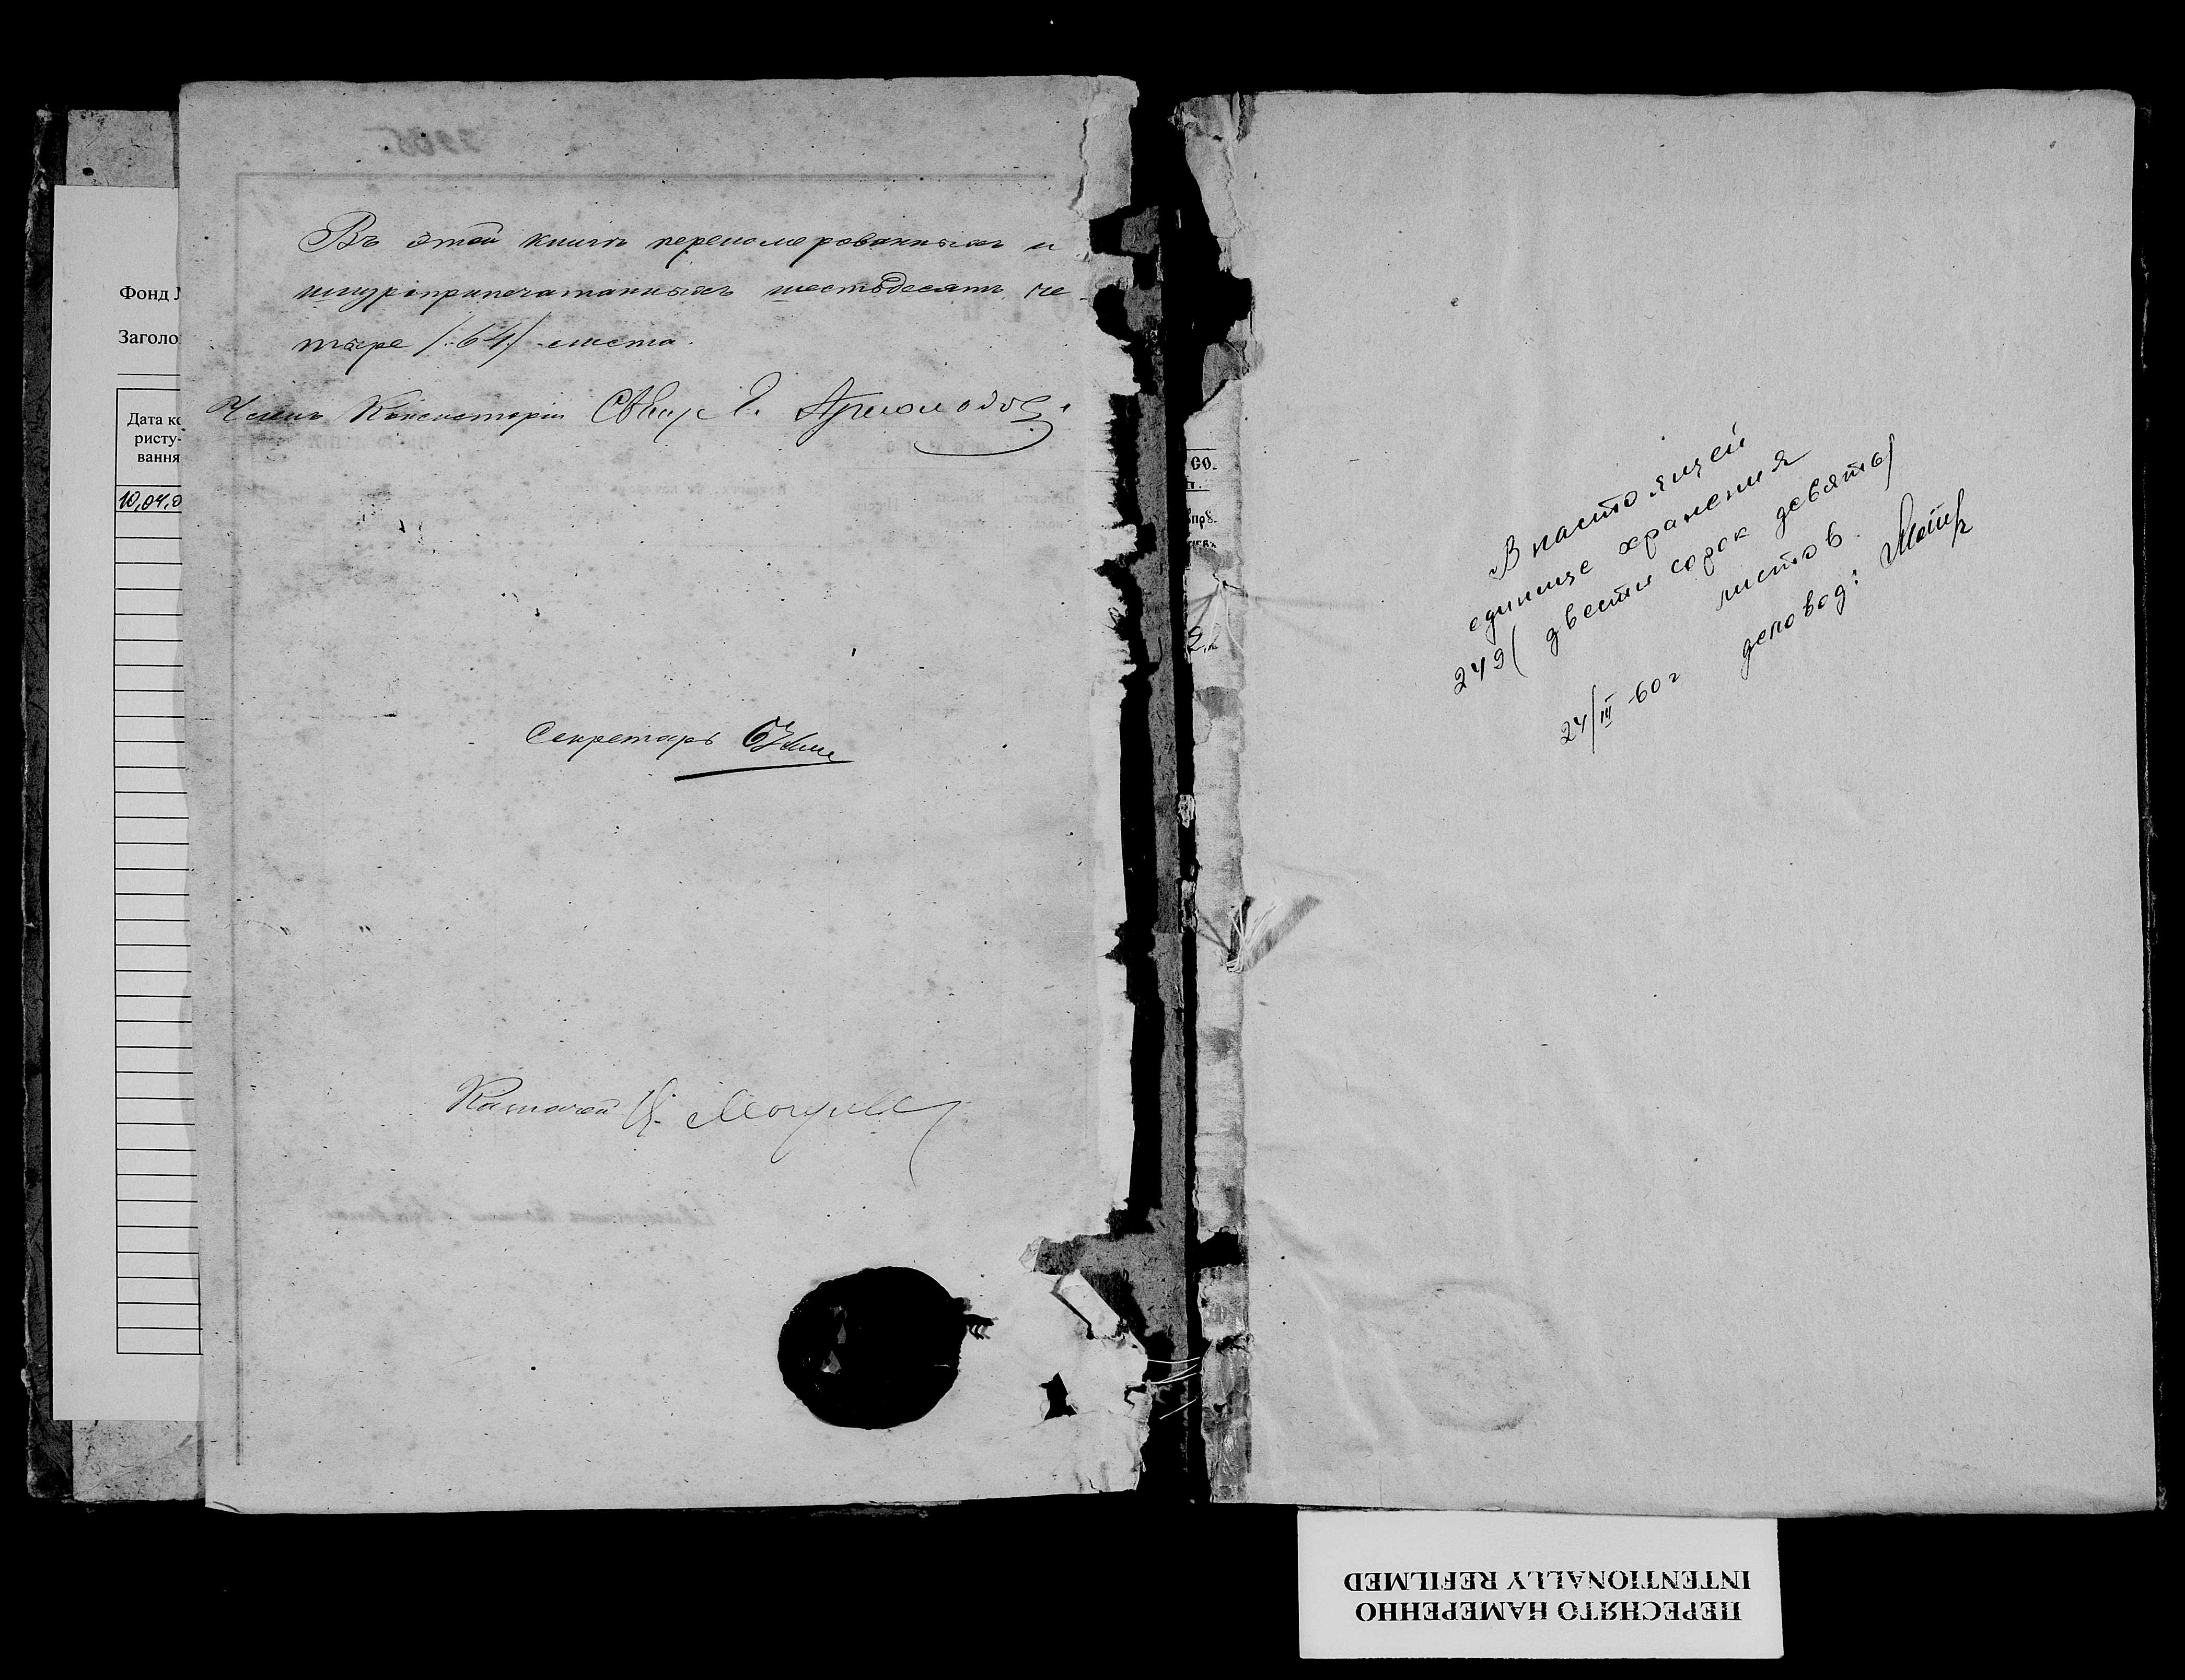 Фонд
Заголо
Дата ко
ристу-
вання
10,04,0
Въ этой книгѣ перенομерованныхъ и
шнуроприпечатанныхъ шестьдесятъ че-
тыре /:64:/ листа.
Членъ Консисторіи Свящ.
Секретарь
Казначей
В настоящей
единице хранения
249 ( двести сорок девять)
листов.
24/III-60 г деловод:
ПЕРЕСНЯТО НАМЕРЕННО
INTENTIONALLY REFILMED